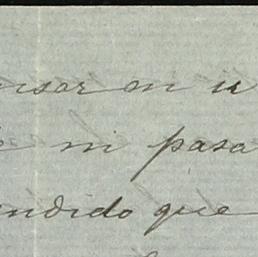 nsar en u
mi pasa
endido que